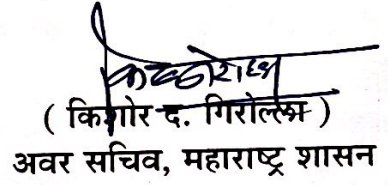 ( किशोर द. गिरोल्ला )
अवर सचिव, महाराष्ट्र शासन